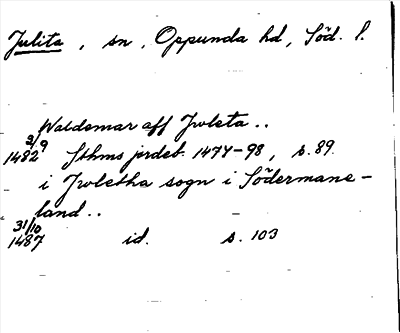 Julita, sn, Oppunda hd, Söd. l.
Waldemar aff Jwleta..
2/9
1482 Sthms jordeb. 1474-98, s. 89.
i Jwletha sogn i Södermane-
land..
31/10
1487 id. s. 103